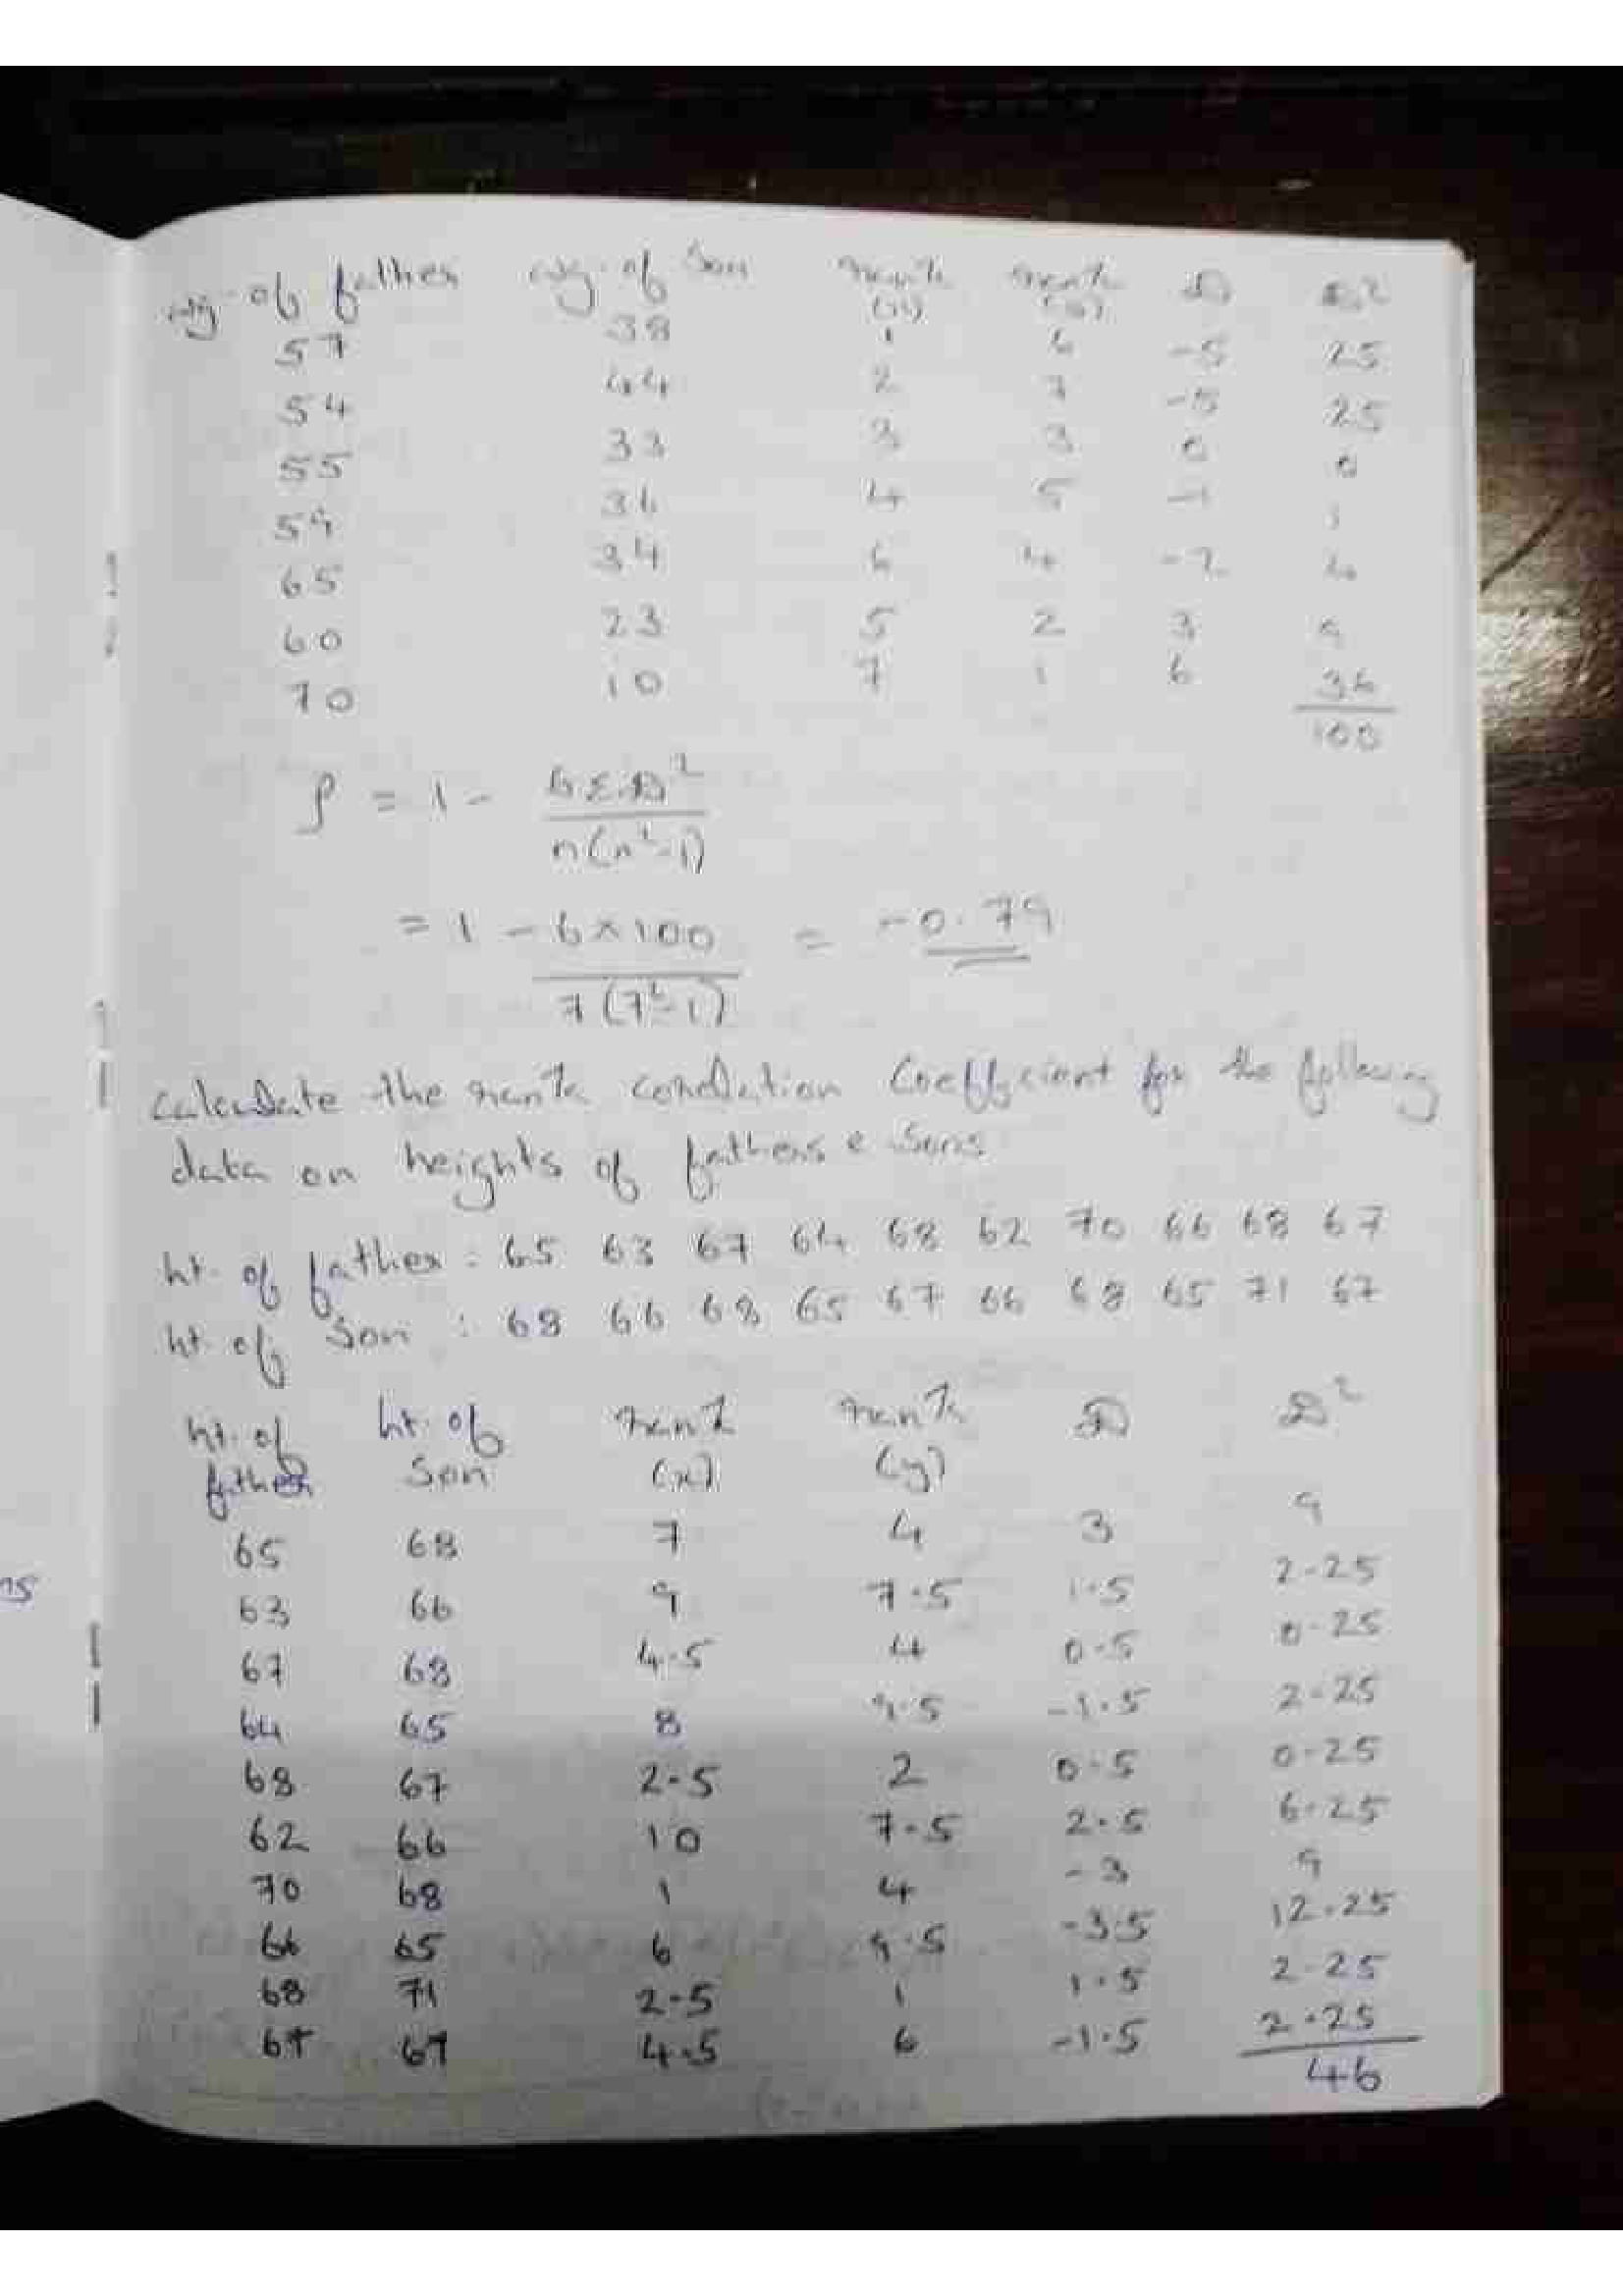 wg. of father wg. of Son rank (x) rank (y) D D²
57 38 1 6 -5 25
54 44 2 7 -5 25
55 33 3 3 0 0
59 36 4 5 -1 1
65 34 6 4 -2 4
60 23 5 2 3 9
70 10 7 1 6 36
100
ρ = 1 - 6ΣD² / n(n²-1)
= 1 - 6×100 / 7(7²-1) = -0.79
calculate the rank correlation Coefficient for the following
data on heights of fathers & sons
ht. of father : 65 63 67 64 68 62 70 66 68 67
ht. of Son : 68 66 68 65 67 66 68 65 71 67
ht. of father ht. of Son rank (x) rank (y) D D²
65 68 7 4 3 9
63 66 9 7.5 1.5 2.25
67 68 4.5 4 0.5 0.25
64 65 8 9.5 -1.5 2.25
68 67 2.5 2 0.5 0.25
62 66 10 7.5 2.5 6.25
70 68 1 4 -3 9
66 65 6 9.5 -3.5 12.25
68 71 2.5 1 1.5 2.25
67 67 4.5 6 -1.5 2.25
46